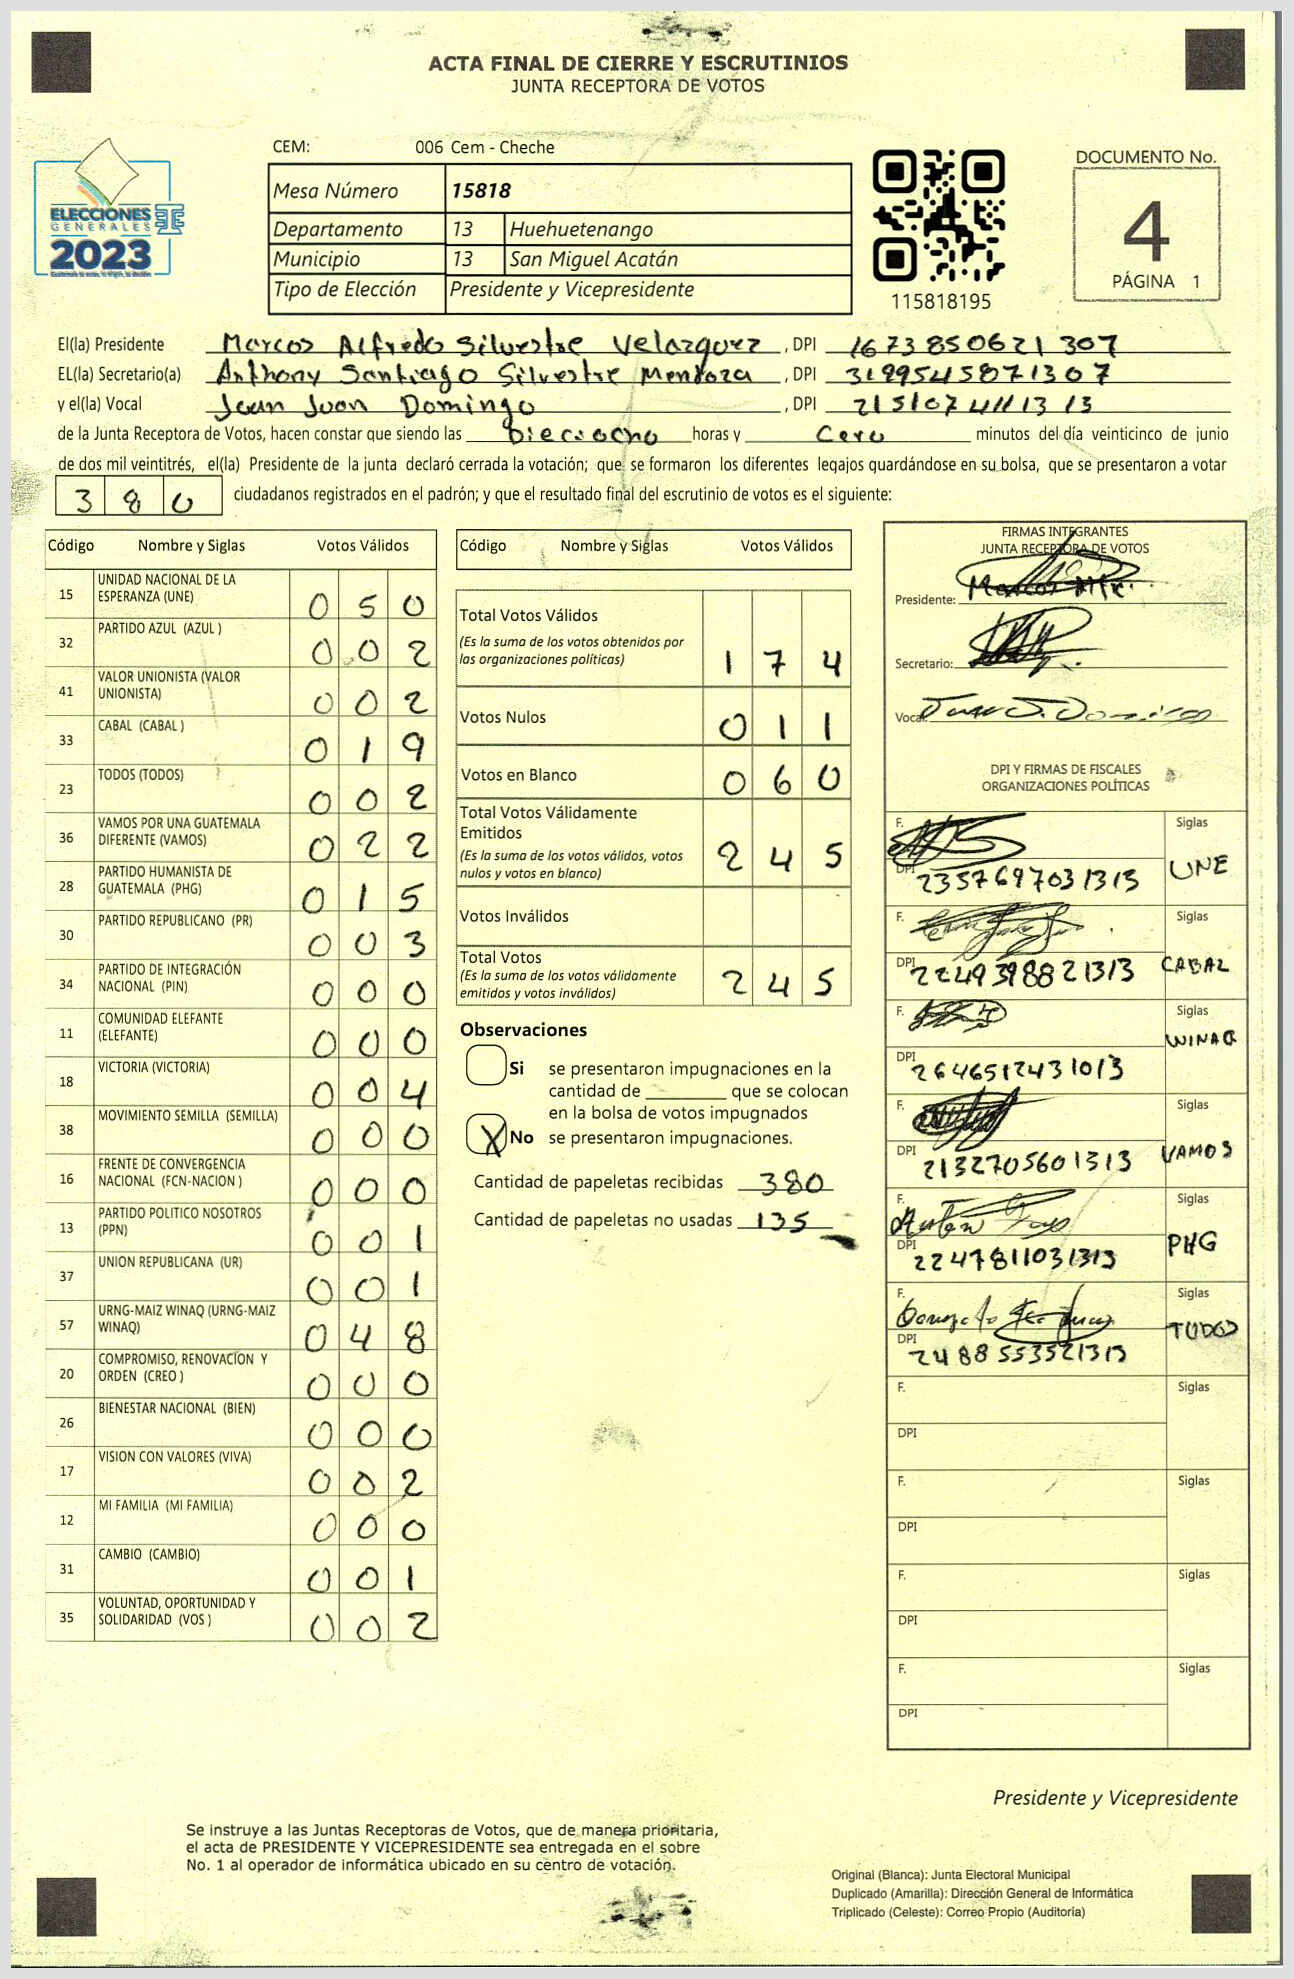 ACTA FINAL DE CIERRE Y ESCRUTINIOS
JUNTA RECEPTORA DE VOTOS
ELECCIONES
GENERALES
2023
CEM: 006 Cem - Cheche
Mesa Número 15818
Departamento 13 Huehuetenango
Municipio 13 San Miguel Acatán
Tipo de Elección Presidente y Vicepresidente
115818195
DOCUMENTO No.
4
PÁGINA 1
El(la) Presidente Marcos Alfredo Silvestre Velazquez, DPI 1673850621307
EL(la) Secretario(a) Anthony Santiago Silvestre Mendoza, DPI 3199545871307
y el(la) Vocal Juan Juan Domingo, DPI 2151074111313
de la Junta Receptora de Votos, hacen constar que siendo las Dieciocho horas y Cero minutos del día veinticinco de junio
de dos mil veintitrés, el(la) Presidente de la junta declaró cerrada la votación; que se formaron los diferentes legajos guardándose en su bolsa, que se presentaron a votar
380 ciudadanos registrados en el padrón; y que el resultado final del escrutinio de votos es el siguiente:
Código Nombre y Siglas Votos Válidos
15 UNIDAD NACIONAL DE LA ESPERANZA (UNE) 050
32 PARTIDO AZUL (AZUL ) 002
41 VALOR UNIONISTA (VALOR UNIONISTA) 002
33 CABAL (CABAL ) 019
23 TODOS (TODOS) 002
36 VAMOS POR UNA GUATEMALA DIFERENTE (VAMOS) 022
28 PARTIDO HUMANISTA DE GUATEMALA (PHG) 015
30 PARTIDO REPUBLICANO (PR) 003
34 PARTIDO DE INTEGRACIÓN NACIONAL (PIN) 000
11 COMUNIDAD ELEFANTE (ELEFANTE) 000
18 VICTORIA (VICTORIA) 004
38 MOVIMIENTO SEMILLA (SEMILLA) 000
16 FRENTE DE CONVERGENCIA NACIONAL (FCN-NACION ) 000
13 PARTIDO POLITICO NOSOTROS (PPN) 001
37 UNION REPUBLICANA (UR) 001
57 URNG-MAIZ WINAQ (URNG-MAIZ WINAQ) 048
20 COMPROMISO, RENOVACION Y ORDEN (CREO ) 000
26 BIENESTAR NACIONAL (BIEN) 000
17 VISION CON VALORES (VIVA) 002
12 MI FAMILIA (MI FAMILIA) 000
31 CAMBIO (CAMBIO) 001
35 VOLUNTAD, OPORTUNIDAD Y SOLIDARIDAD (VOS ) 002
Código Nombre y Siglas Votos Válidos
Total Votos Válidos
(Es la suma de los votos obtenidos por
las organizaciones políticas) 174
Votos Nulos 011
Votos en Blanco 060
Total Votos Válidamente
Emitidos
(Es la suma de los votos válidos, votos
nulos y votos en blanco) 245
Votos Inválidos
Total Votos
(Es la suma de los votos válidamente
emitidos y votos inválidos) 245
Observaciones
Si se presentaron impugnaciones en la
cantidad de ________ que se colocan
en la bolsa de votos impugnados
X No se presentaron impugnaciones.
Cantidad de papeletas recibidas 380
Cantidad de papeletas no usadas 135
FIRMAS INTEGRANTES
JUNTA RECEPTORA DE VOTOS
Presidente:
Secretario:
Vocal
DPI Y FIRMAS DE FISCALES
ORGANIZACIONES POLÍTICAS
F. Siglas
DPI 2357697031313 UNE
F. Siglas
DPI 2249398821313 CABAL
F. Siglas
DPI 2646512431013 WINAQ
F. Siglas
DPI 2132705601313 VAMOS
F. Siglas
DPI 2247811031313 PHG
F. Siglas
DPI 2488553521313 TODOS
F. Siglas
DPI
F. Siglas
DPI
F. Siglas
DPI
F. Siglas
DPI
Presidente y Vicepresidente
Se instruye a las Juntas Receptoras de Votos, que de manera prioritaria,
el acta de PRESIDENTE Y VICEPRESIDENTE sea entregada en el sobre
No. 1 al operador de informática ubicado en su centro de votación.
Original (Blanca): Junta Electoral Municipal
Duplicado (Amarilla): Dirección General de Informática
Triplicado (Celeste): Correo Propio (Auditoría)